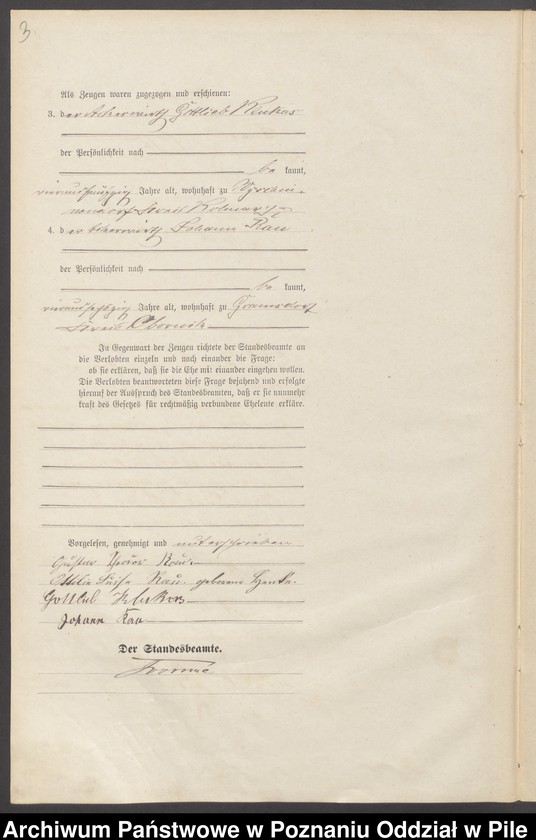 3
Als Zeugen waren zugezogen und erschienen:
3. der Ackerwirth Gottlieb
der Persönlichkeit nach
be kannt,
vierundfünfzig Jahre alt, wohnhaft zu
Kreis Kolmar
4. der Ackerwirth Johann Rau
der Persönlichkeit nach
be kannt,
vierundsechszig Jahre alt, wohnhaft zu Gramsdorf
Kreis Obornik
In Gegenwart der Zeugen richtete der Standesbeamte an
die Verlobten einzeln und nach einander die Frage:
ob sie erklären, daß sie die Ehe mit einander eingehen wollen.
Die Verlobten beantworteten diese Frage bejahend und erfolgte
hierauf der Ausspruch des Standesbeamten, daß er sie nunmehr
kraft des Gesetzes für rechtmäßig verbundene Eheleute erkläre.
Vorgelesen, genehmigt und unterschrieben
Gustav Rau
Rau geborene
Gottlieb
Johann Rau
Der Standesbeamte.
Archiwum Państwowe w Poznaniu Oddział w Pile